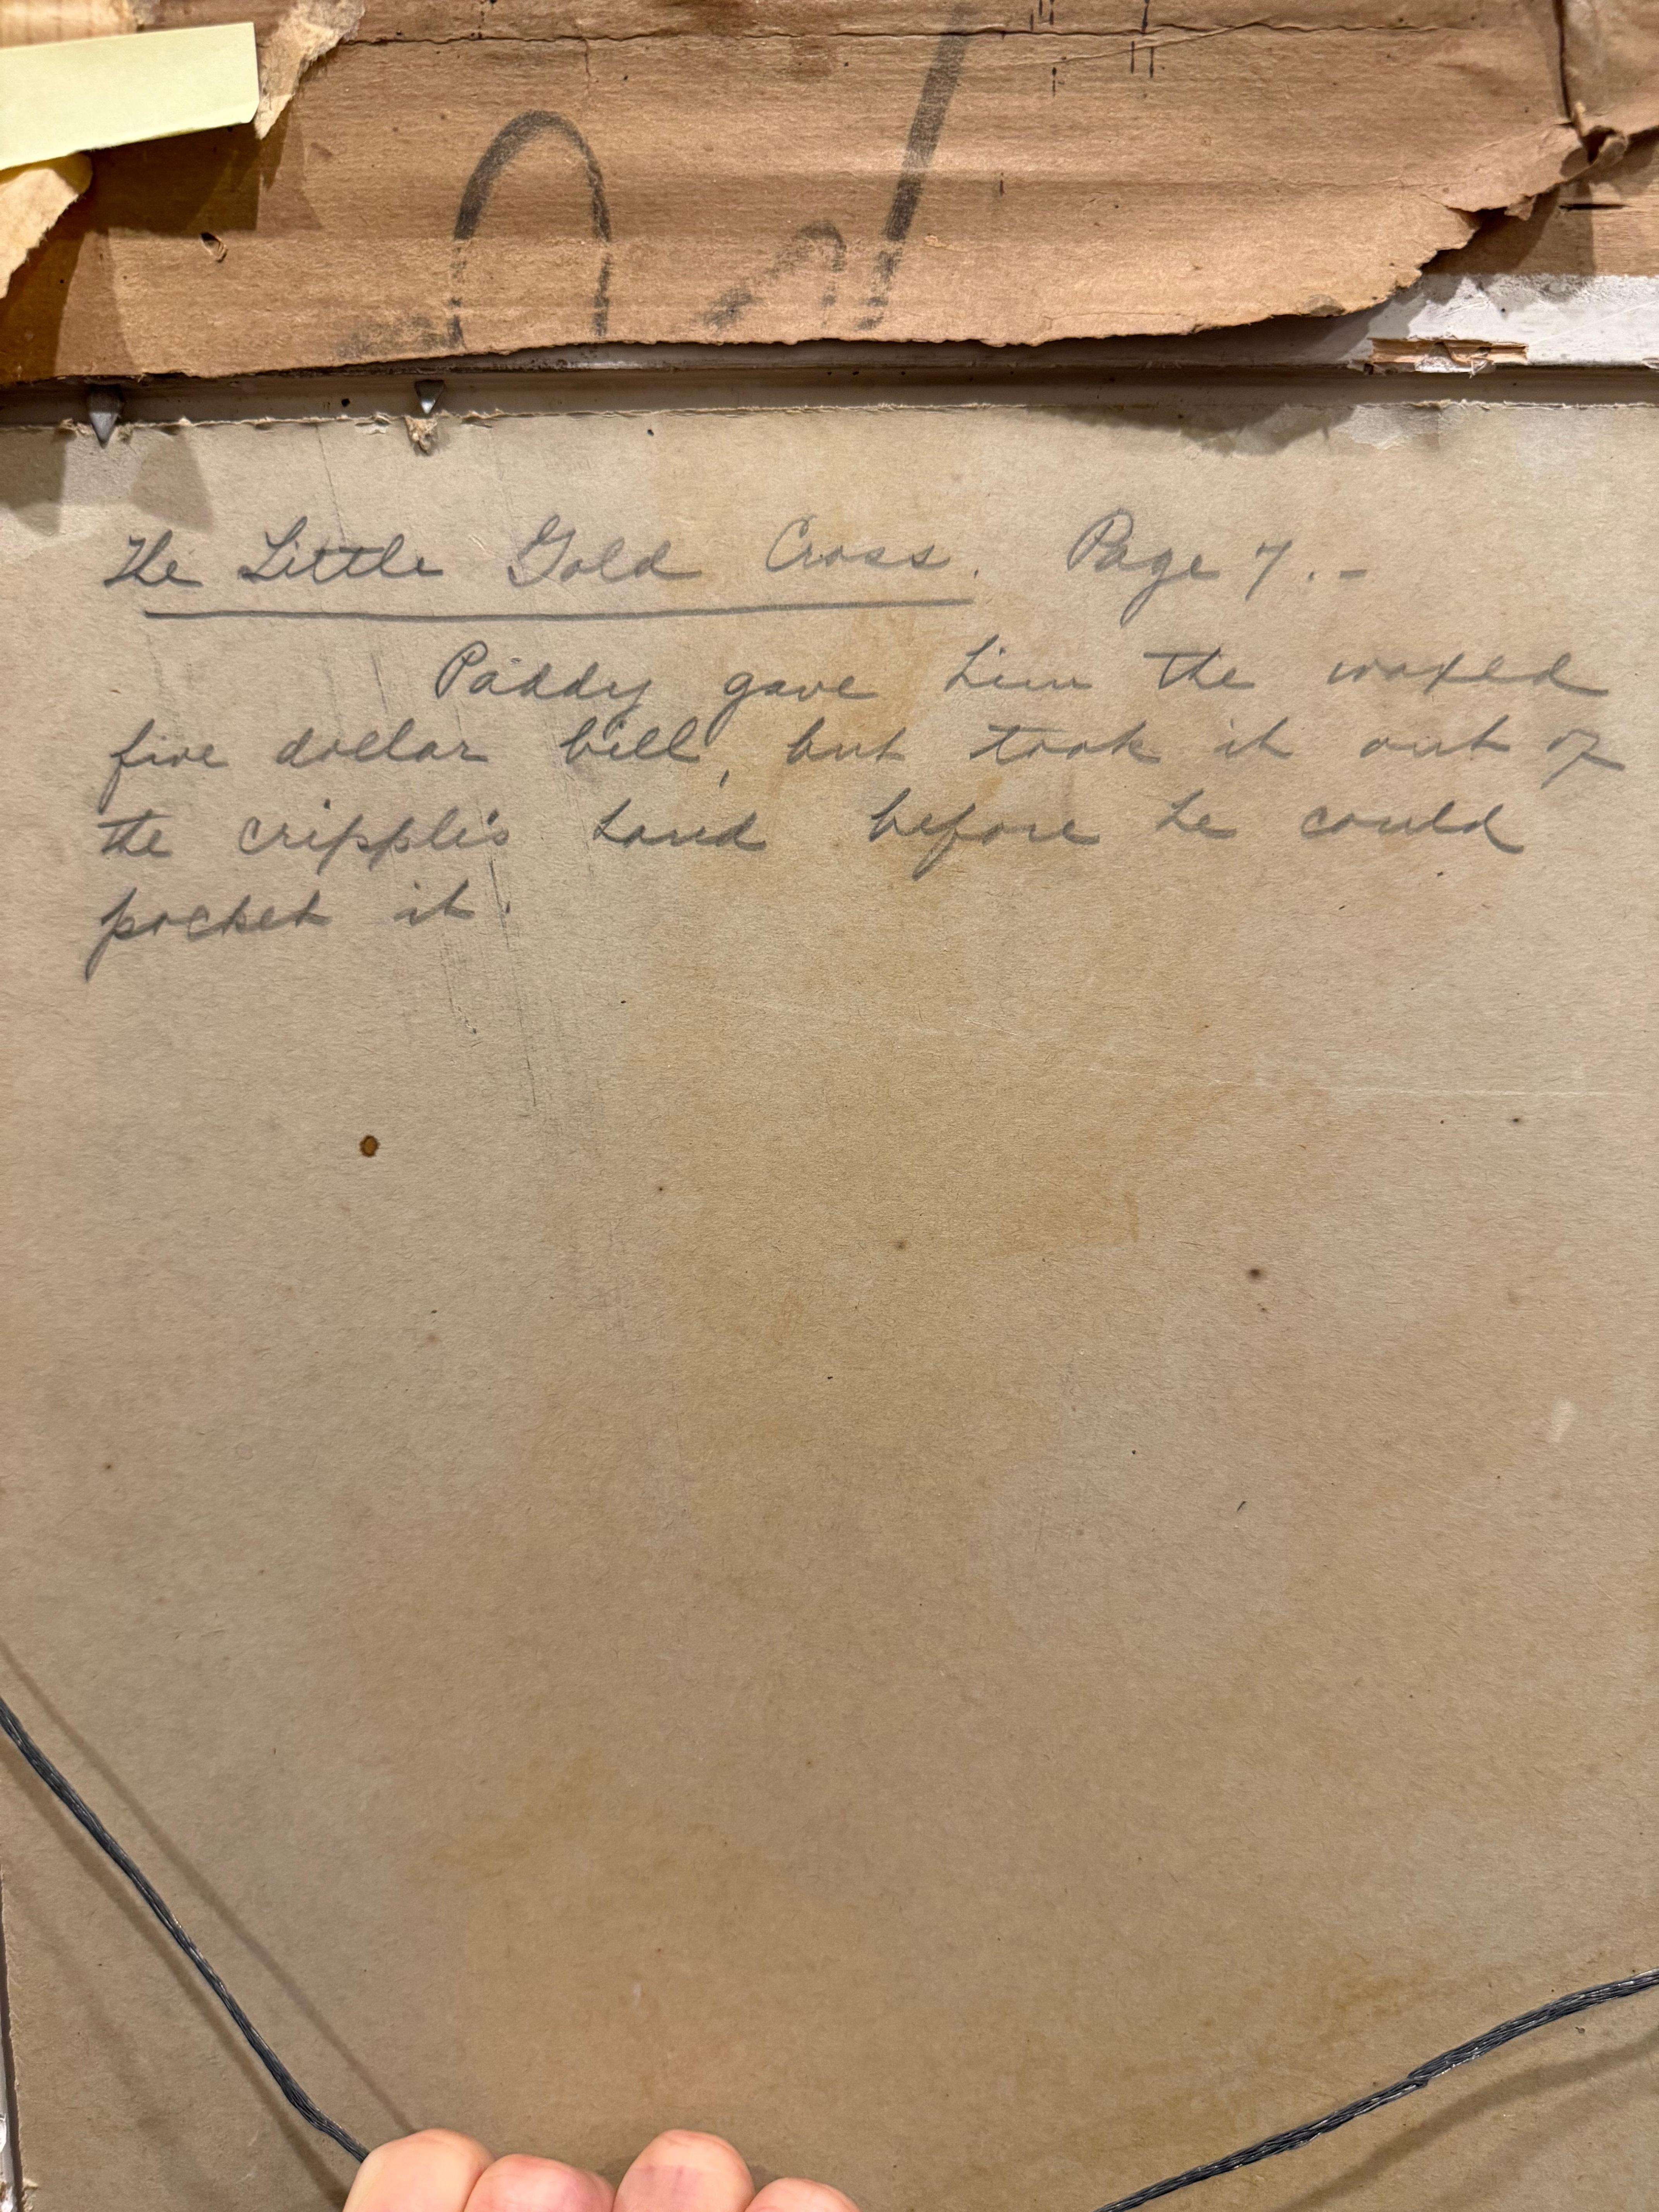 The Little Gold Cross. Page 7.-
Paddy gave him the waxed
five dollar bill, but took it out of
the cripple's hand before he could
pocket it.